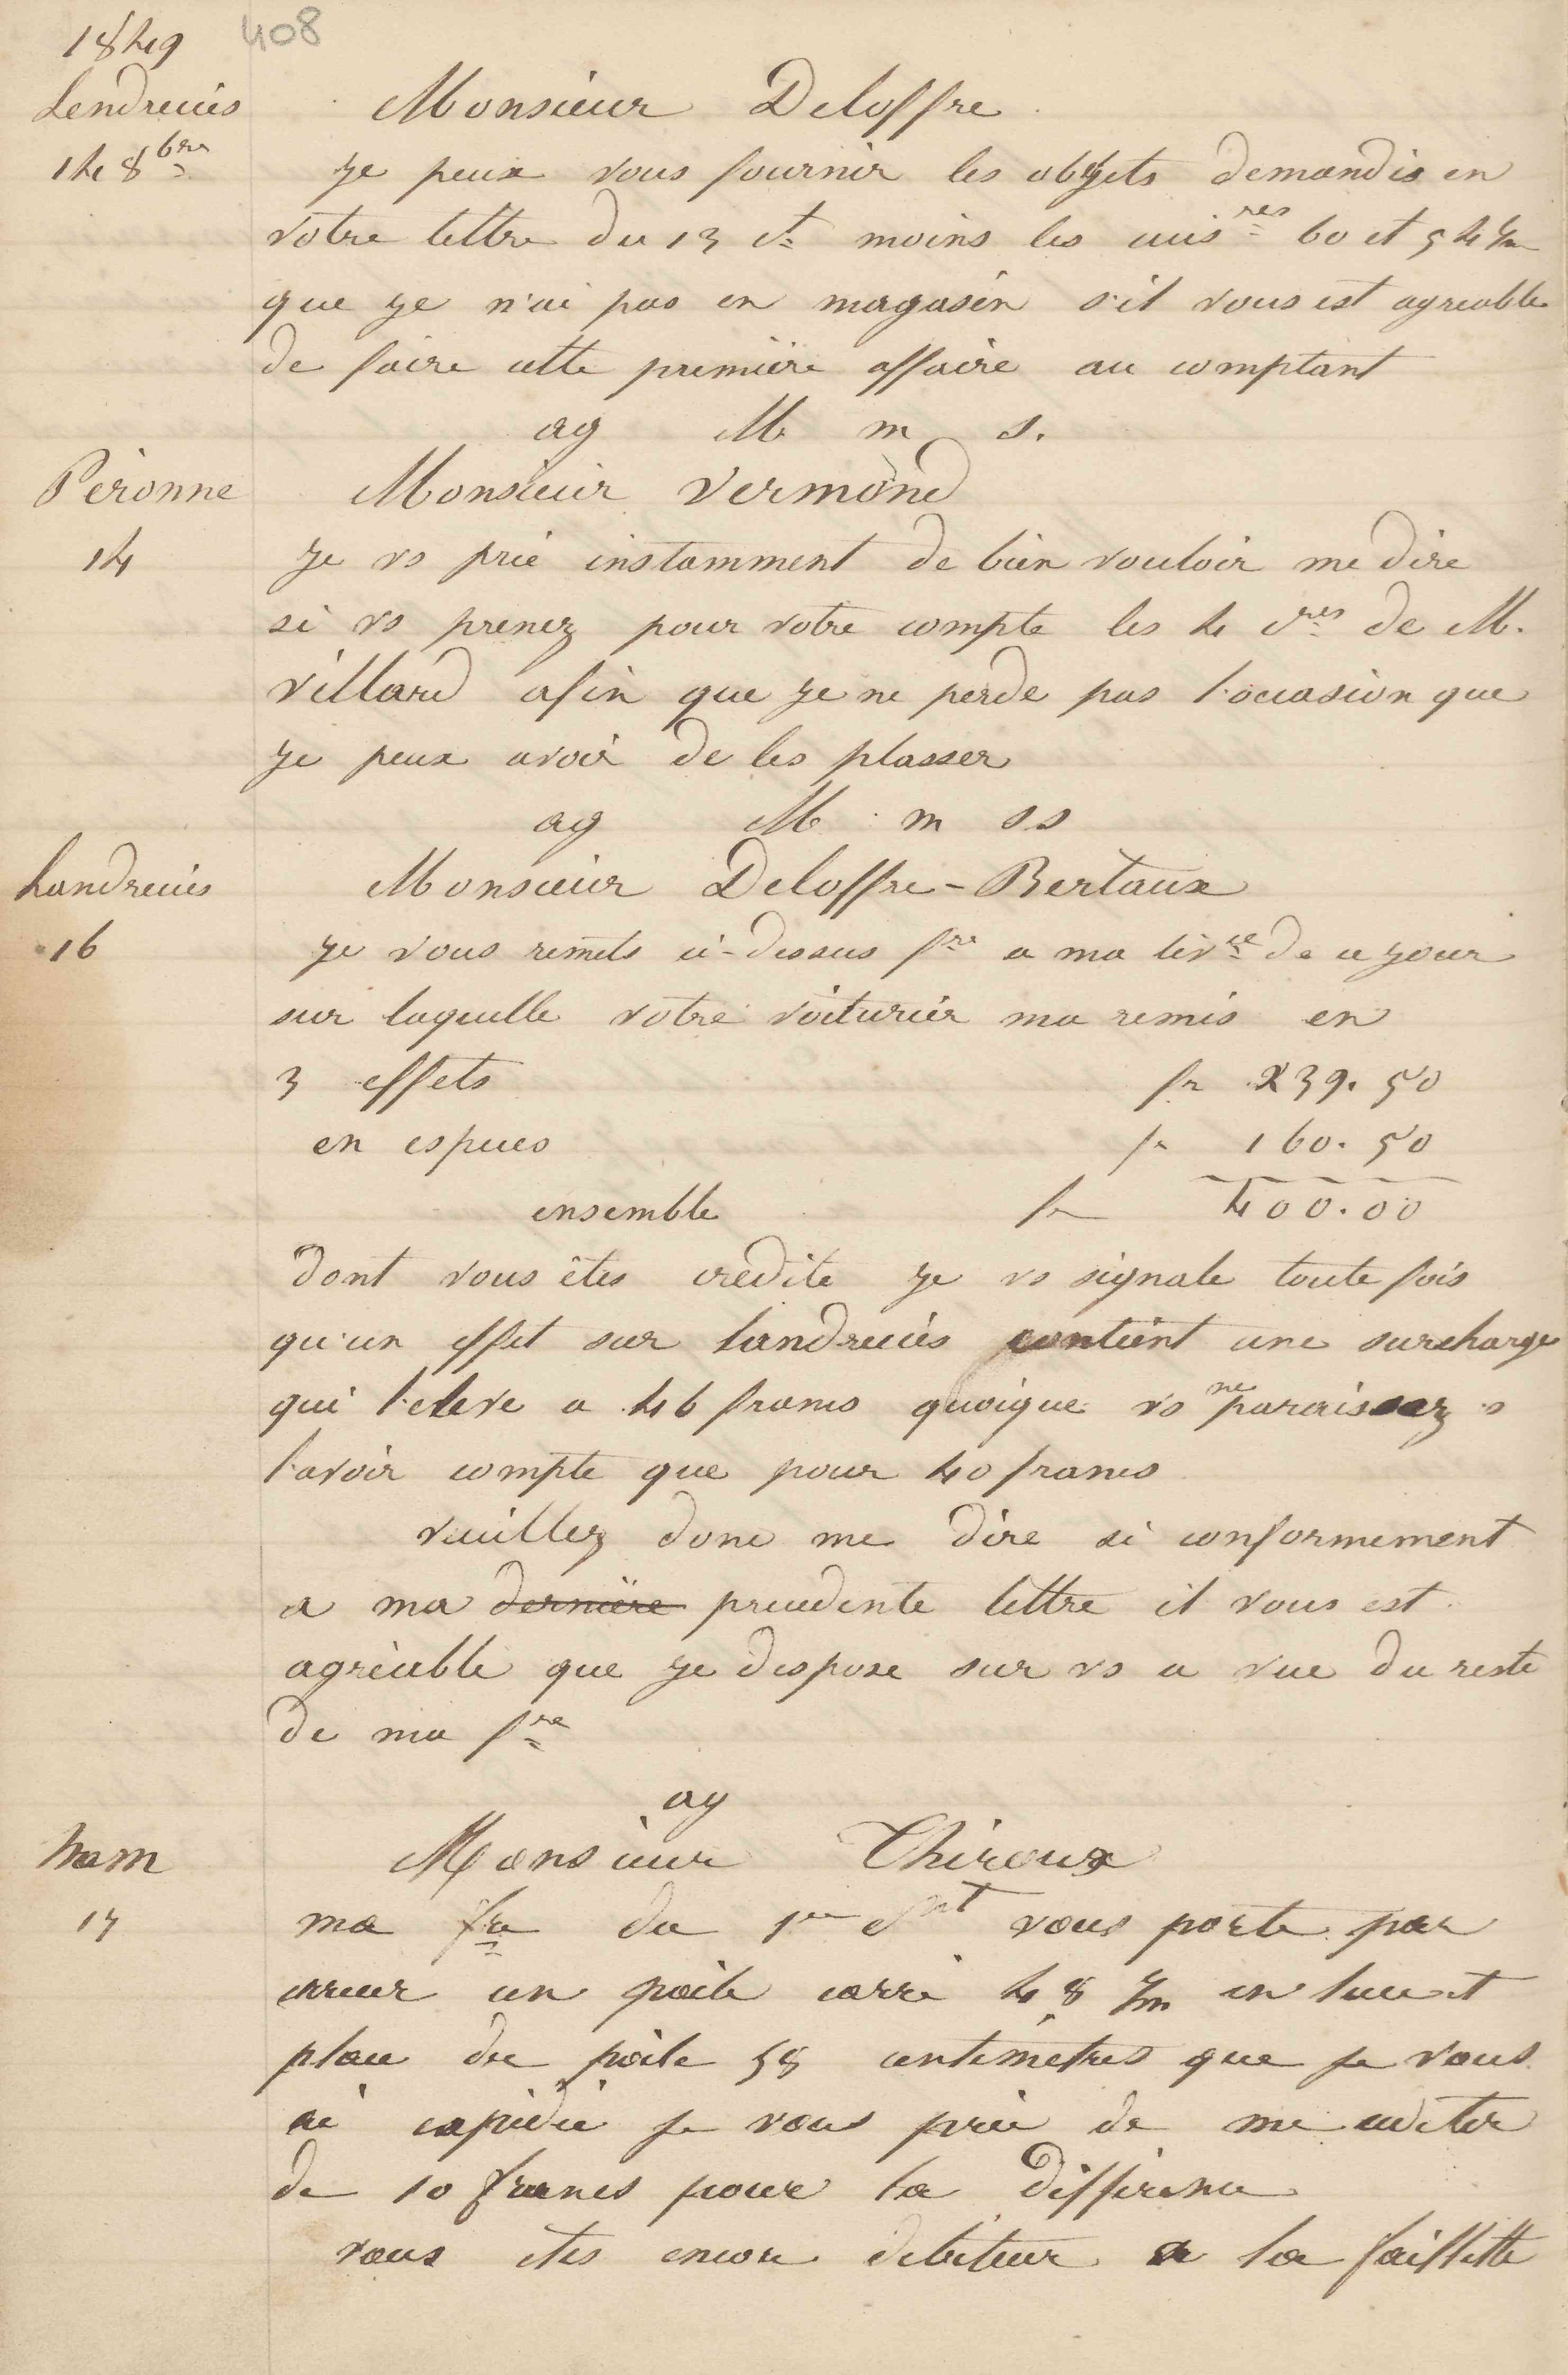 1849 408
Lendrecies
14 8bre
Monsieur Deloffre
je peux vous fournir les objets demandés en
votre lettre du 13 ct moins les cuisres 60 et 54 c/m
que je n'ai pas en magasin s'il vous est agreable
de faire cette première affaire au comptant
ag M m s.
Péronne
14
Monsieur Vermond
je vs prie instamment de bien vouloir me dire
si vs prenez pour votre compte les 4 cres de M.
Villard afin que je ne perde pas l'occasion que
je peux avoir de les plasser
ag M m ss
Landrecies
16
Monsieur Deloffre-Bertaux
je vous remets ci-dessus fre a ma livce de ce jour
sur laquelle votre voiturier ma remis en
3 effets fr 239.50
en especes fr 160.50
ensemble fr 400.00
dont vous êtes crédité je vs signale toute fois
qu'un effet sur landrecies contient une surcharge
qui l'eleve a 46 francs quoique vs ne paraissez s
l'avoir compte que pour 40 francs
veuillez donc me dire si conformement
a ma dernière precedente lettre il vous est
agréable que je dispose sur vs a vue du reste
de ma fre
ag
ham
17
Monsieur Thiroux
ma fre du 1er cnt vous porte par
erreur un poile carré 48 c/m en lieu et
place du poile 58 centimetres que je vous
ai expidié je vous prie de me crediter
de 10 francs pour la difference
vous etes encore debiteur a la faillette